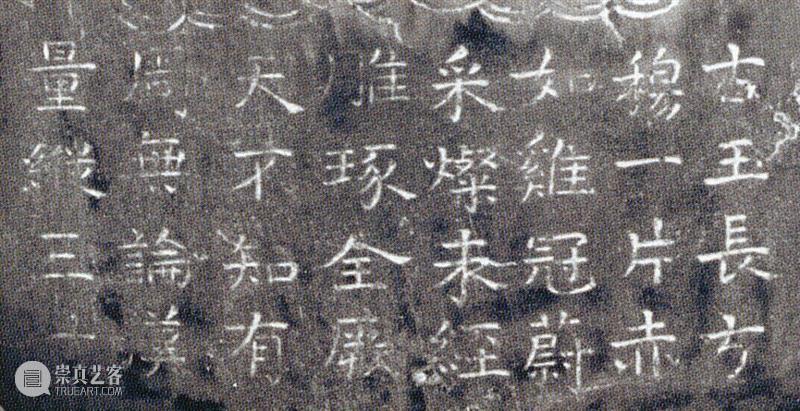 古玉長方
穆一片赤
如雞冠蔚
采燦未經
雕琢全厥
天才知有
周無論漢
量縱三
崇真艺客
TRUEART.COM